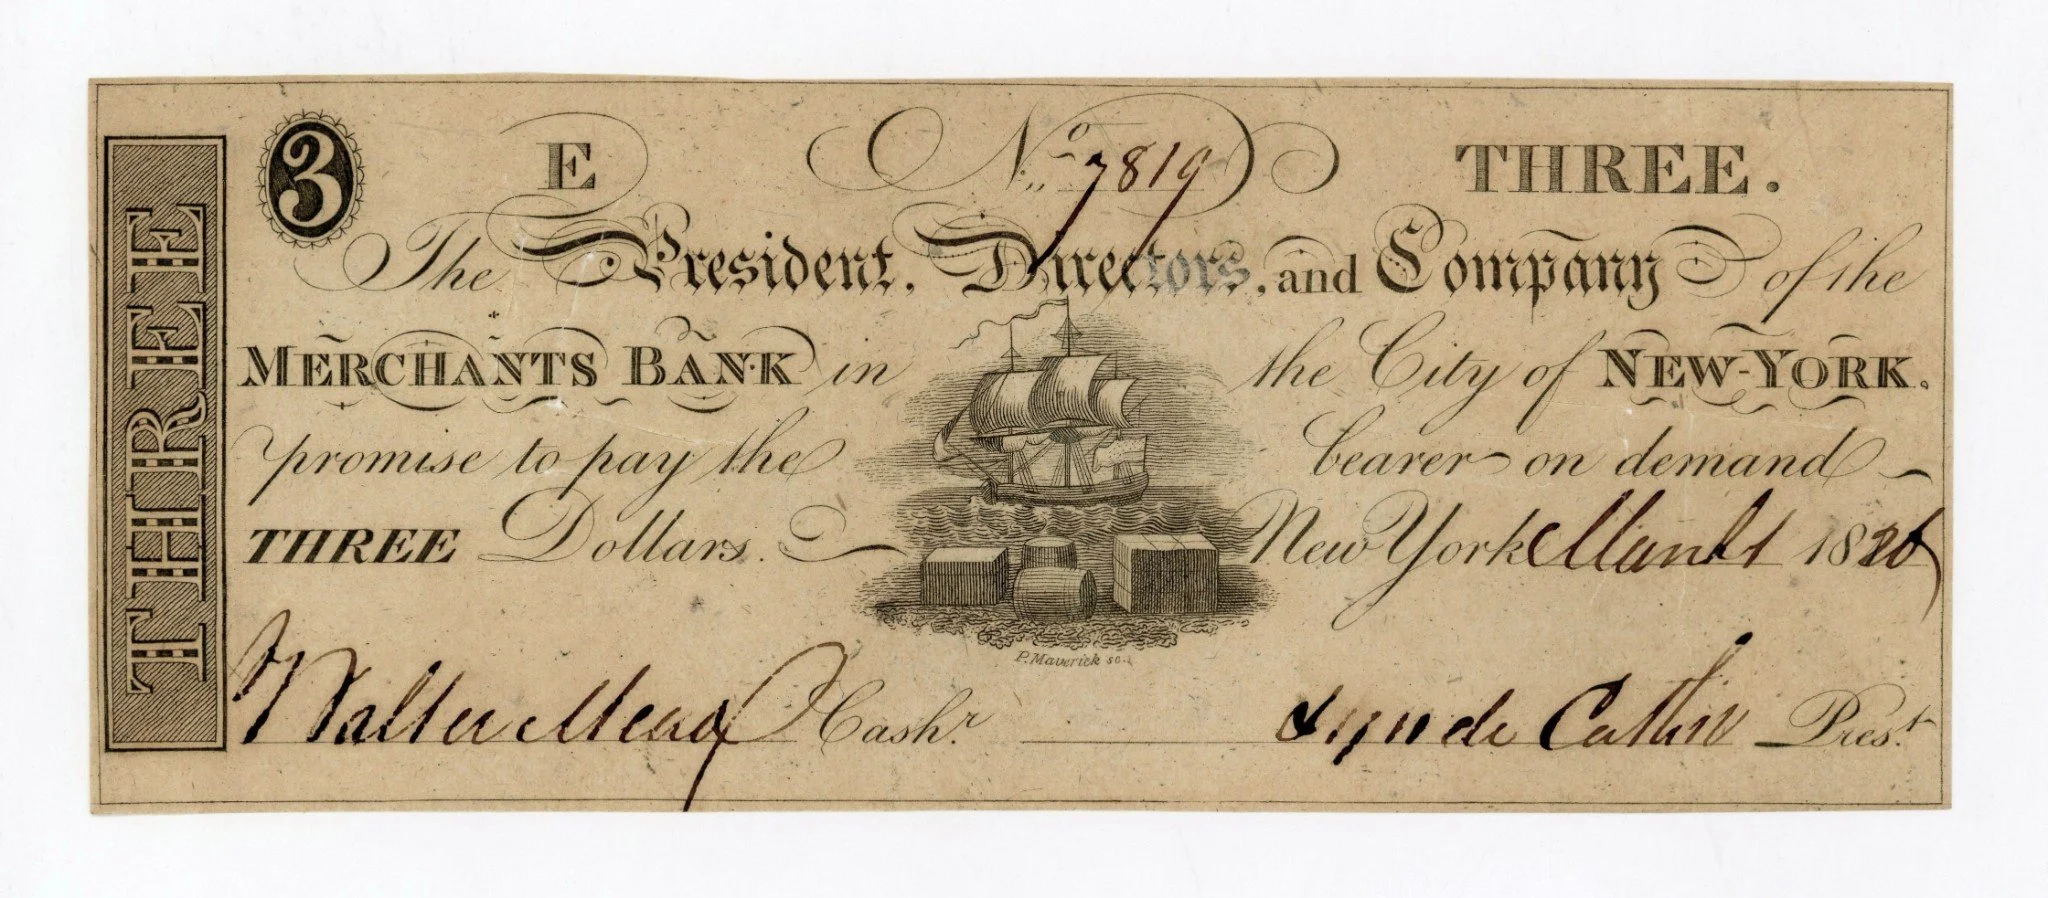 THREE
3 E No. 7819 THREE.
The President, Directors, and Company of the
MERCHANTS BANK in the City of NEW-YORK.
promise to pay the bearer on demand
THREE Dollars. New York March 1 1826
P. Maverick sc.
Walter Mead Cash.r Lynde Catlin Pres.t